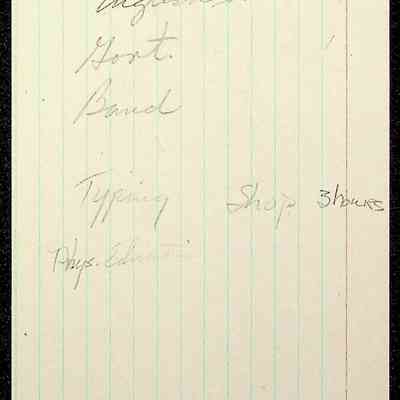 Govt.
Band
Typing Shop 3 hours
Phys. Education